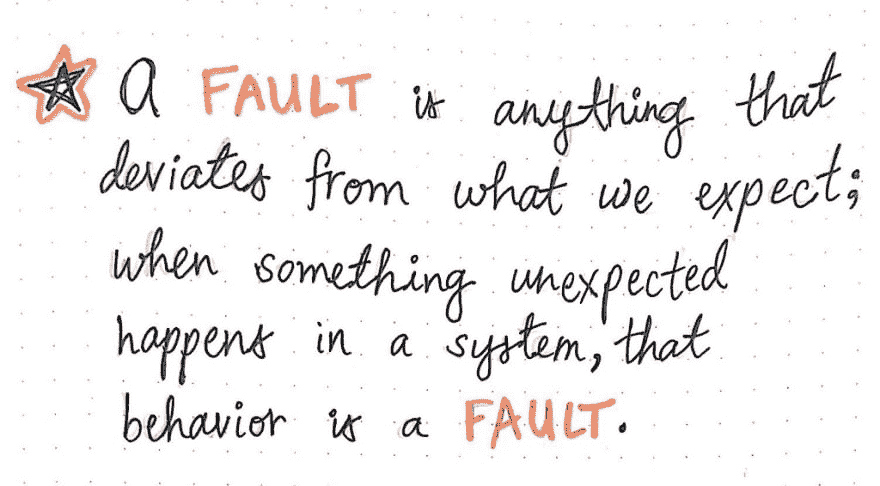 A FAULT is anything that
deviates from what we expect;
when something unexpected
happens in a system, that
behavior is a FAULT.